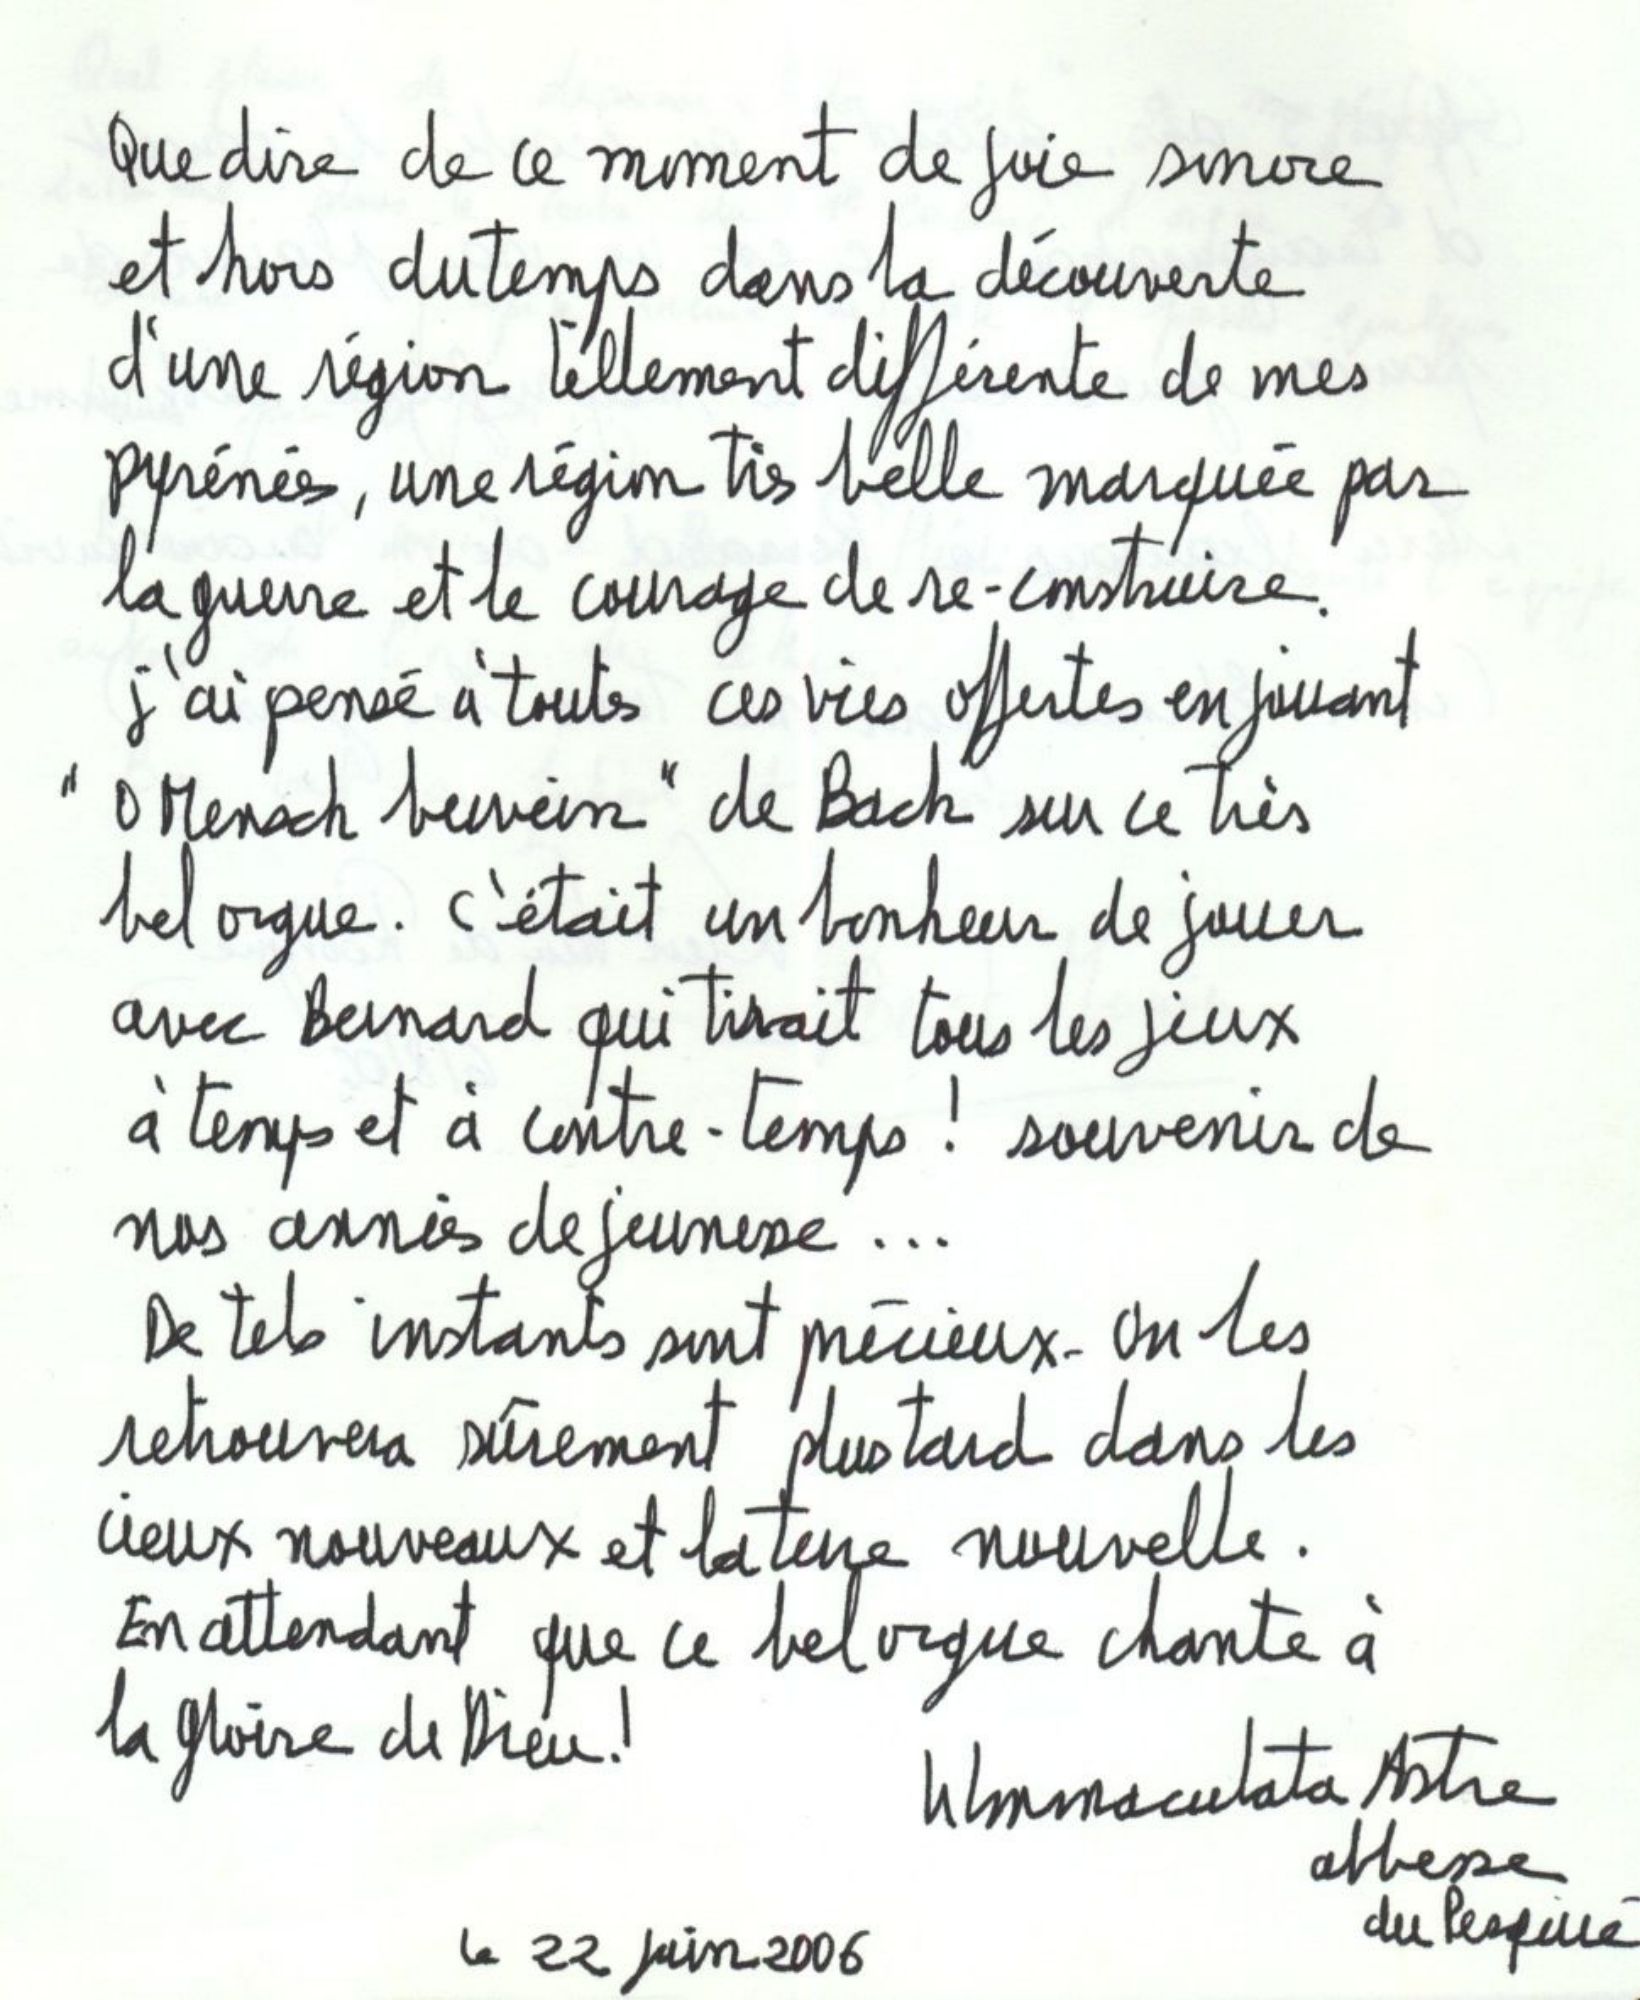 Que dire de ce moment de joie sonore
et hors du temps dans la découverte
d'une région tellement différente de mes
pyrénées, une région très belle marquée par
la guerre et le courage de re-construire.
j'ai pensé à toutes ces vies offertes en jouant
"O Mensch bewein" de Bach sur ce très
bel orgue. C'était un bonheur de jouer
avec Bernard qui tirait tous les jeux
à temps et à contre-temps ! souvenir de
nos années de jeunesse ...
De tels instants sont précieux - On les
retrouvera sûrement plus tard dans les
cieux nouveaux et la terre nouvelle.
En attendant que ce bel orgue chante à
la gloire de Dieu !
Immaculata Astre
abbesse
du Pesquié
le 22 juin 2006